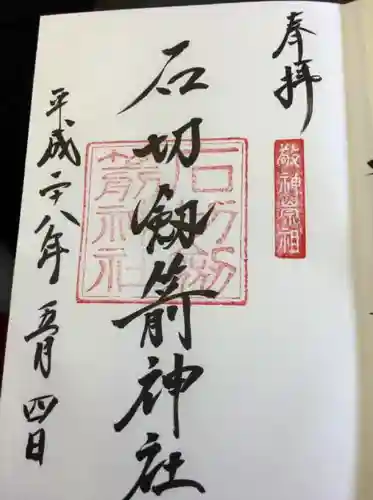 奉拝
敬神崇祖
石切劔箭神社
石切劔
箭神社
平成二十八年 五月四日